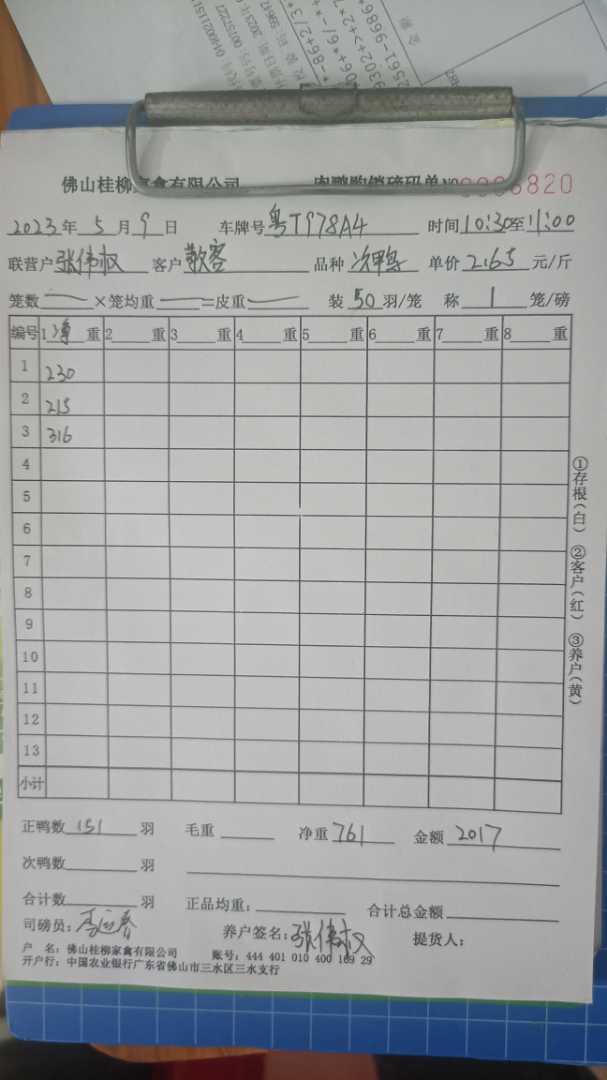 佛山桂柳家禽有限公司 肉鸭购销磅码单 NO 0006820
2023年5月9日 车牌号粤T978A4 时间10:30至11:00
联营户张伟权 客户散客 品种次鸭 单价2.65元/斤
笼数 ×笼均重 =皮重 装50羽/笼 称1笼/磅
编号 1净重 2 重 3 重 4 重 5 重 6 重 7 重 8 重
1 230
2 215
3 316
4
5
6
7
8
9
10
11
12
13
小计
①存根(白) ②客户(红) ③养户(黄)
正鸭数151羽 毛重 净重761 金额2017
次鸭数 羽
合计数 羽 正品均重: 合计总金额
司磅员: 养户签名:张伟权 提货人:
户 名:佛山桂柳家禽有限公司 账号:444 401 010 400 169 29
开户行:中国农业银行广东省佛山市三水区三水支行